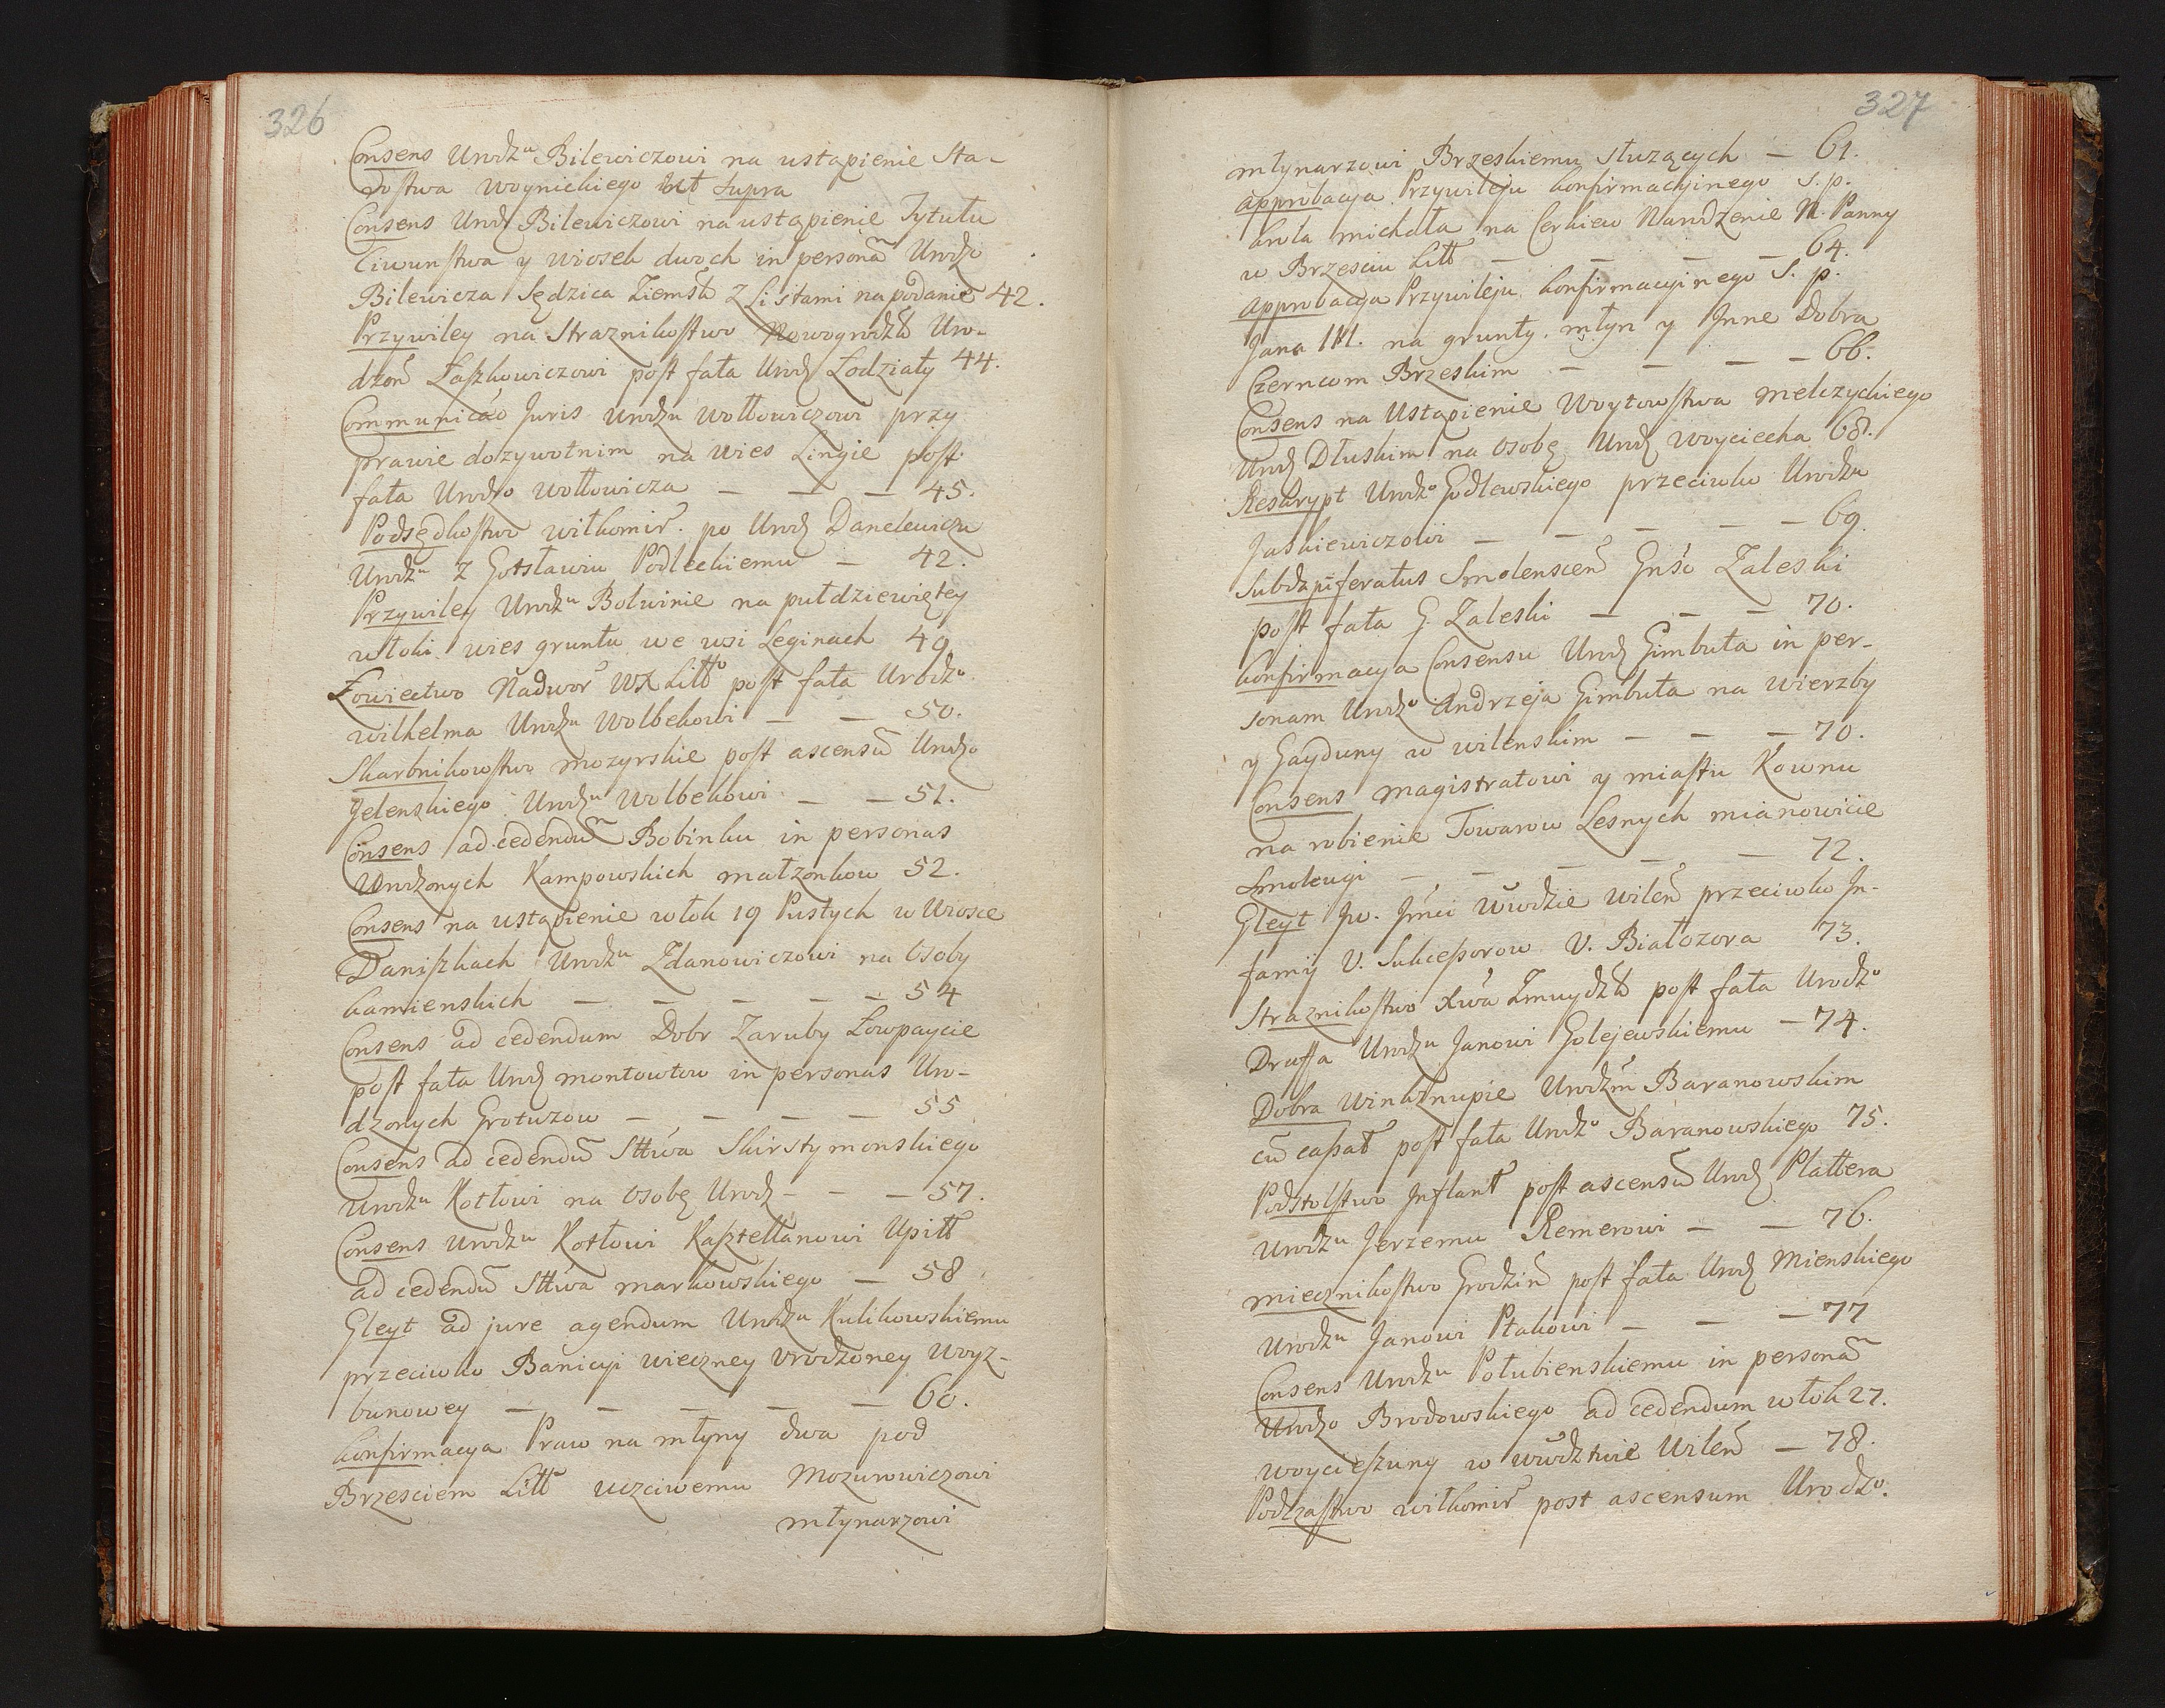 326
Consens Urodzu Bilewiczowi na ustąpienie Sta-
rostwa Woynickiego ut supra
Consens Urodz Bilewiczowi na ustąpienie Tytułu
Ciwunstwa y wiosek dwoch in personam Urodzo
Bilewicza Sędzica Ziemsk z Listami na podanie 42.
Przywiley na Straznikostwo Nowogrodzk Uro-
dzon Łaszkowiczowi post fata Urodz Łodziaty 44.
Communicao Juris Urodzu Wołłowiczowi przy
prawie dozywotnim na wies Lingie post
fata Urodzo Wołłowicza — — — 45.
Podsędkostwo wiłkomir. po Urodz Danelewiczu
Urodzu z Gotsławiu Podleckiemu — 42.
Przywiley Urodzu Bolwinie na pułdziewiętey
włoki wies gruntu we wsi Leginach 49.
Łowiectwo Nadwor WX Litto post fata Urodzo
Wilhelma Urodzu Wolbekowi — — 50.
Skarbnikowstwo mozyrskie post ascensu Urodzo
Jelenskiego Urodzu Wolbekowi — — 51.
Consens ad cedendum Bobinku in personas
Urodzonych Kampowskich małzonkow 52.
Consens na ustąpienie włok 19 Pustych w Wiosce
Daniszkach Urodzu Zdanowiczowi na Osoby
kamienskich — — — — — 54
Consens ad cedendum Dobr Zaruby Łowpaycie
post fata Urodz montowtow in personas Uro-
dzonych Grotuzow — — — — 55
Consens ad cedendu Sttwa Skirstymonskiego
Urodzu Kotłowi na Osobę Urodz — — — 57.
Consens Urodzu Kotłowi Kasztellanowi Upitt
ad cedendu Sttwa markowskiego — 58
Gleyt ad jure agendum Urodzu Kulikowskiemu
przeciwko Banicyi wieczney Urodzoney Woyz-
bunowey — — — — — 60.
konfirmacya Praw na młyny dwa pod
Brzesciem Litt uczciwemu Mozurowiczowi
młynarzowi
327
młynarzowi Brzeskiemu słuzących — 61.
approbacya Przywileju konfirmacyinego S. p.
krola michała na Cerkiew Narodzenie N. Panny
w Brzesciu Litt — — — — 64.
approbacya Przywileju konfirmacyinego S. p.
Jana III. na grunty. młyn y Jnne Dobra
Czerncom Brzeskim — — — — 66.
Consens na Ustąpienie Woytowstwa melczyckiego
Urodz Dłuskim na Osobę Urodz Woyciecha 68.
Reskrypt Urodzo Godlewskiego przeciwko Urodzu
Jaskiewiczowi — — — — — 69.
Subdapiferatus Smolenscen Gnso Zaleski
post fata G. Zaleski — — — 70.
konfirmacya Consensu Urodz Gimbuta in per-
sonam Urodzo Andrzeja Gimbuta na wierzby
y Gayduny w wilenskim — — — 70.
Consens magistratowi y miastu Kownu
na robienie Towarow Lesnych mianowicie
Smolcugi — — — — — 72.
Gleyt Jw. Jmci Wwodzie wilen przeciwko In-
famij V. Sukcessorow V. Białozora 73.
Straznikostwo Xwa Zmuydzk post fata Urodzo
Drassa Urodzu Janowi Golejewskiemu — 74.
Dobra Winksznupie Urodzm Baranowskim
cu cassat post fata Urodzo Baranowskiego 75.
Podstolstwo Inflant post ascensu Urodz Plattera
Urodzu Jerzemu Remerowi — — 76.
miecznikostwo Grodzin post fata Urodz Mienskiego
Urodzu Janowi Ptakowi — — — 77
Consens Urodzu Połubienskiemu in personam
Urodzo Brodowskiego ad cedendum włok 27.
woycieszuny w wwodztwie Wilen — 78.
Podczastwo wiłkomir post ascensum Urodzo.